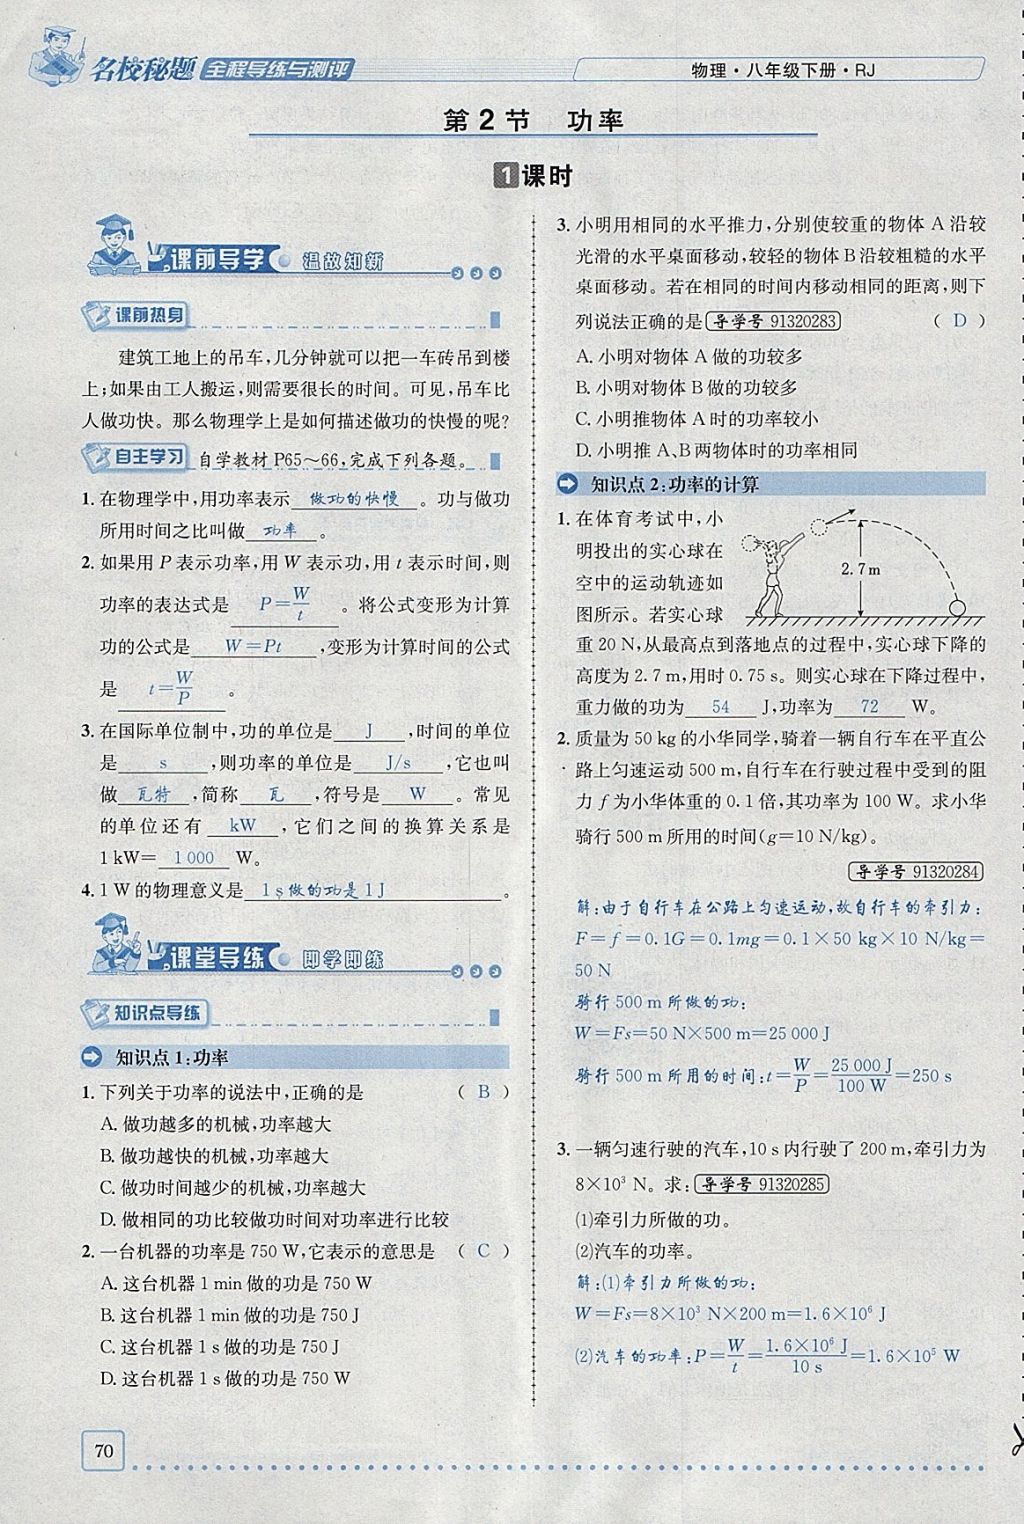 名校秘题 全程导练与测评
物理·八年级下册·RJ
第2节 功率
1课时
课前导学 温故知新
课前热身
建筑工地上的吊车,几分钟就可以把一车砖吊到楼
上;如果由工人搬运,则需要很长的时间。可见,吊车比
人做功快。那么物理学上是如何描述做功的快慢的呢?
自主学习 自学教材 P65～66,完成下列各题。
1. 在物理学中,用功率表示 做功的快慢 。功与做功
所用时间之比叫做 功率 。
2. 如果用 P 表示功率,用 W 表示功,用 t 表示时间,则
功率的表达式是 P=W/t 。将公式变形为计算
功的公式是 W=Pt ,变形为计算时间的公式
是 t=W/P 。
3. 在国际单位制中,功的单位是 J ,时间的单位
是 s ,则功率的单位是 J/s ,它也叫
做 瓦特 ,简称 瓦 ,符号是 W 。常见
的单位还有 kW ,它们之间的换算关系是
1 kW= 1 000 W。
4. 1 W 的物理意义是 1 s 做的功是 1 J 。
课堂导练 即学即练
知识点导练
知识点 1:功率
1. 下列关于功率的说法中,正确的是 ( B )
A. 做功越多的机械,功率越大
B. 做功越快的机械,功率越大
C. 做功时间越少的机械,功率越大
D. 做相同的功比较做功时间对功率进行比较
2. 一台机器的功率是 750 W,它表示的意思是 ( C )
A. 这台机器 1 min 做的功是 750 W
B. 这台机器 1 min 做的功是 750 J
C. 这台机器 1 s 做的功是 750 J
D. 这台机器 1 s 做的功是 750 W
3. 小明用相同的水平推力,分别使较重的物体 A 沿较
光滑的水平桌面移动,较轻的物体 B 沿较粗糙的水平
桌面移动。若在相同的时间内移动相同的距离,则下
列说法正确的是 导学号 91320283 ( D )
A. 小明对物体 A 做的功较多
B. 小明对物体 B 做的功较多
C. 小明推物体 A 时的功率较小
D. 小明推 A、B 两物体时的功率相同
知识点 2:功率的计算
1. 在体育考试中,小
明投出的实心球在
空中的运动轨迹如
图所示。若实心球
2.7 m
重 20 N,从最高点到落地点的过程中,实心球下降的
高度为 2.7 m,用时 0.75 s。则实心球在下降过程中,
重力做的功为 54 J,功率为 72 W。
2. 质量为 50 kg 的小华同学,骑着一辆自行车在平直公
路上匀速运动 500 m,自行车在行驶过程中受到的阻
力 f 为小华体重的 0.1 倍,其功率为 100 W。求小华
骑行 500 m 所用的时间(g=10 N/kg)。
导学号 91320284
解:由于自行车在公路上匀速运动,故自行车的牵引力:
F=f=0.1G=0.1mg=0.1×50 kg×10 N/kg=
50 N
骑行 500 m 所做的功:
W=Fs=50 N×500 m=25 000 J
骑行 500 m 所用的时间:t=W/P=25 000 J/100 W=250 s
3. 一辆匀速行驶的汽车,10 s 内行驶了 200 m,牵引力为
8×10³ N。求: 导学号 91320285
(1)牵引力所做的功。
(2)汽车的功率。
解:(1)牵引力所做的功:
W=Fs=8×10³ N×200 m=1.6×10⁶ J
(2)汽车的功率:P=W/t=1.6×10⁶ J/10 s=1.6×10⁵ W
70